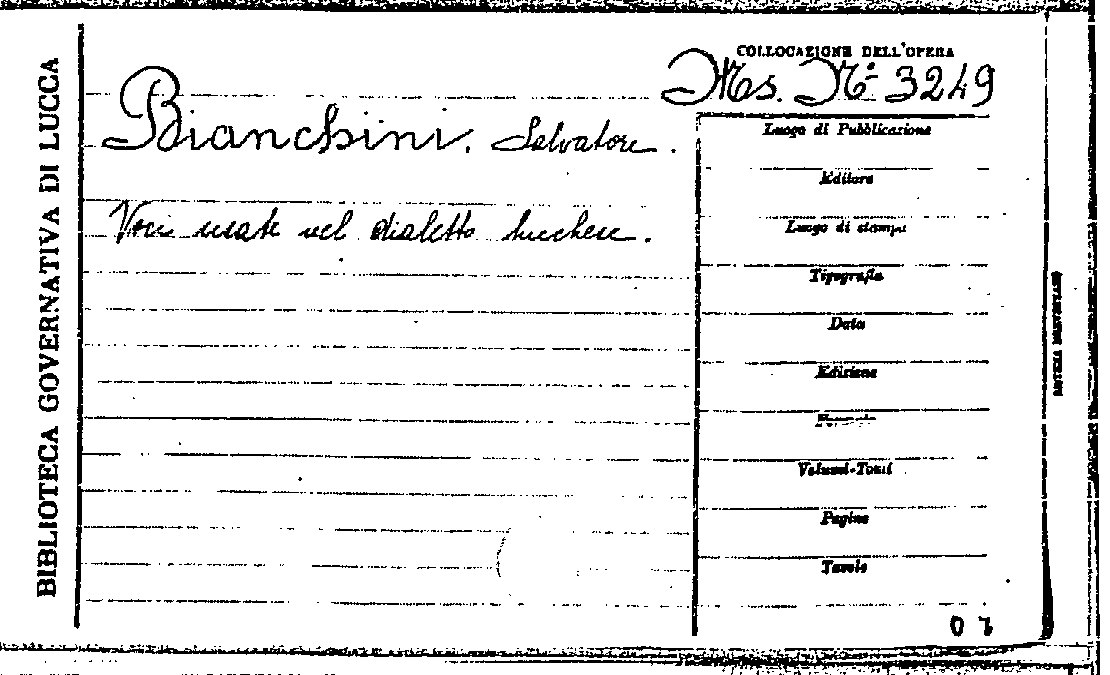 BIBLIOTECA GOVERNATIVA DI LUCCA
COLLOCAZIONE DELL'OPERA
Ms. N° 3249
Bianchini, Salvatore.
Voci usate nel dialetto lucchese.
Luogo di Pubblicazione
Editore
Luogo di stampa
Tipografia
Data
Edizione
Formato
Volumi-Tomi
Pagine
Tavole